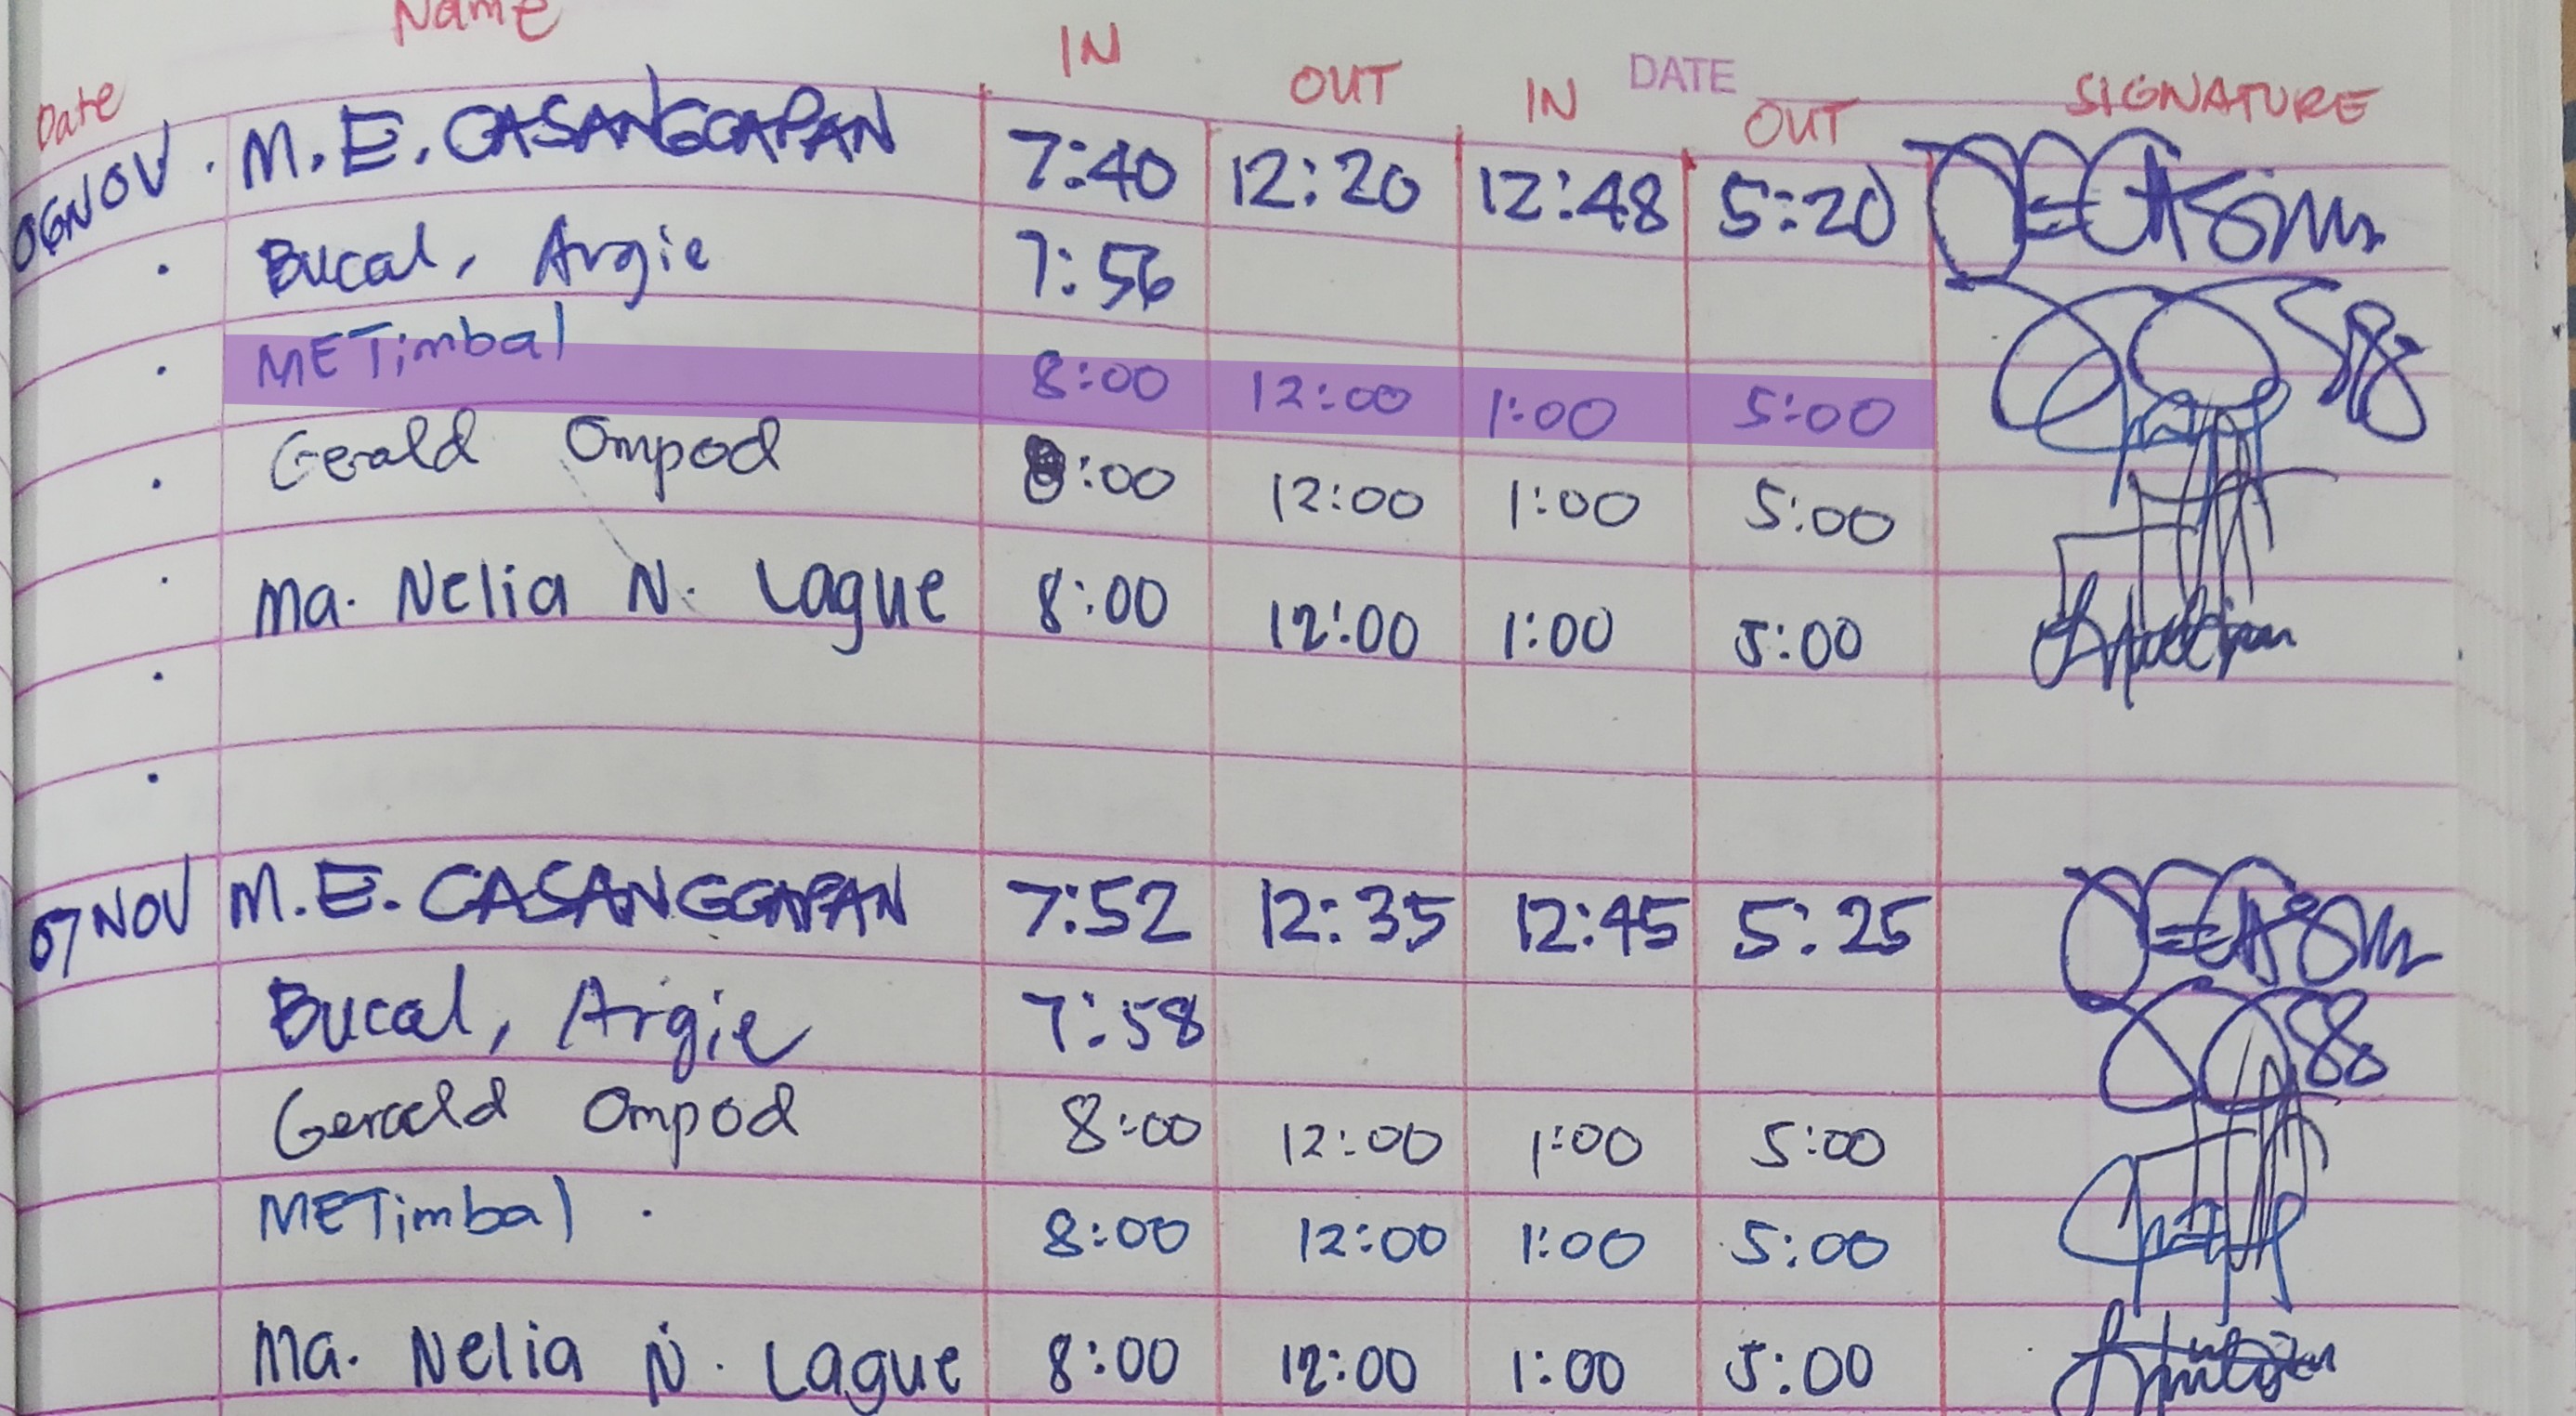 Name
Date IN OUT IN DATE OUT SIGNATURE
06 NOV . M. E. CASANGGAPAN 7:40 12:20 12:48 5:20
Bucal, Argie 7:56
METimbal 8:00 12:00 1:00 5:00
Gerald Ompod 8:00 12:00 1:00 5:00
Ma. Nelia N. Lague 8:00 12:00 1:00 5:00
07 NOV M.E. CASANGGAPAN 7:52 12:35 12:45 5:25
Bucal, Argie 7:58
Gerald Ompod 8:00 12:00 1:00 5:00
METimbal 8:00 12:00 1:00 5:00
Ma. Nelia N. Lague 8:00 12:00 1:00 5:00